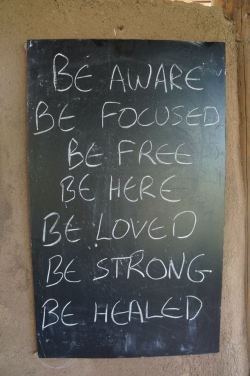 BE AWARE
BE FOCUSED
BE FREE
BE HERE
BE LOVED
BE STRONG
BE HEALED